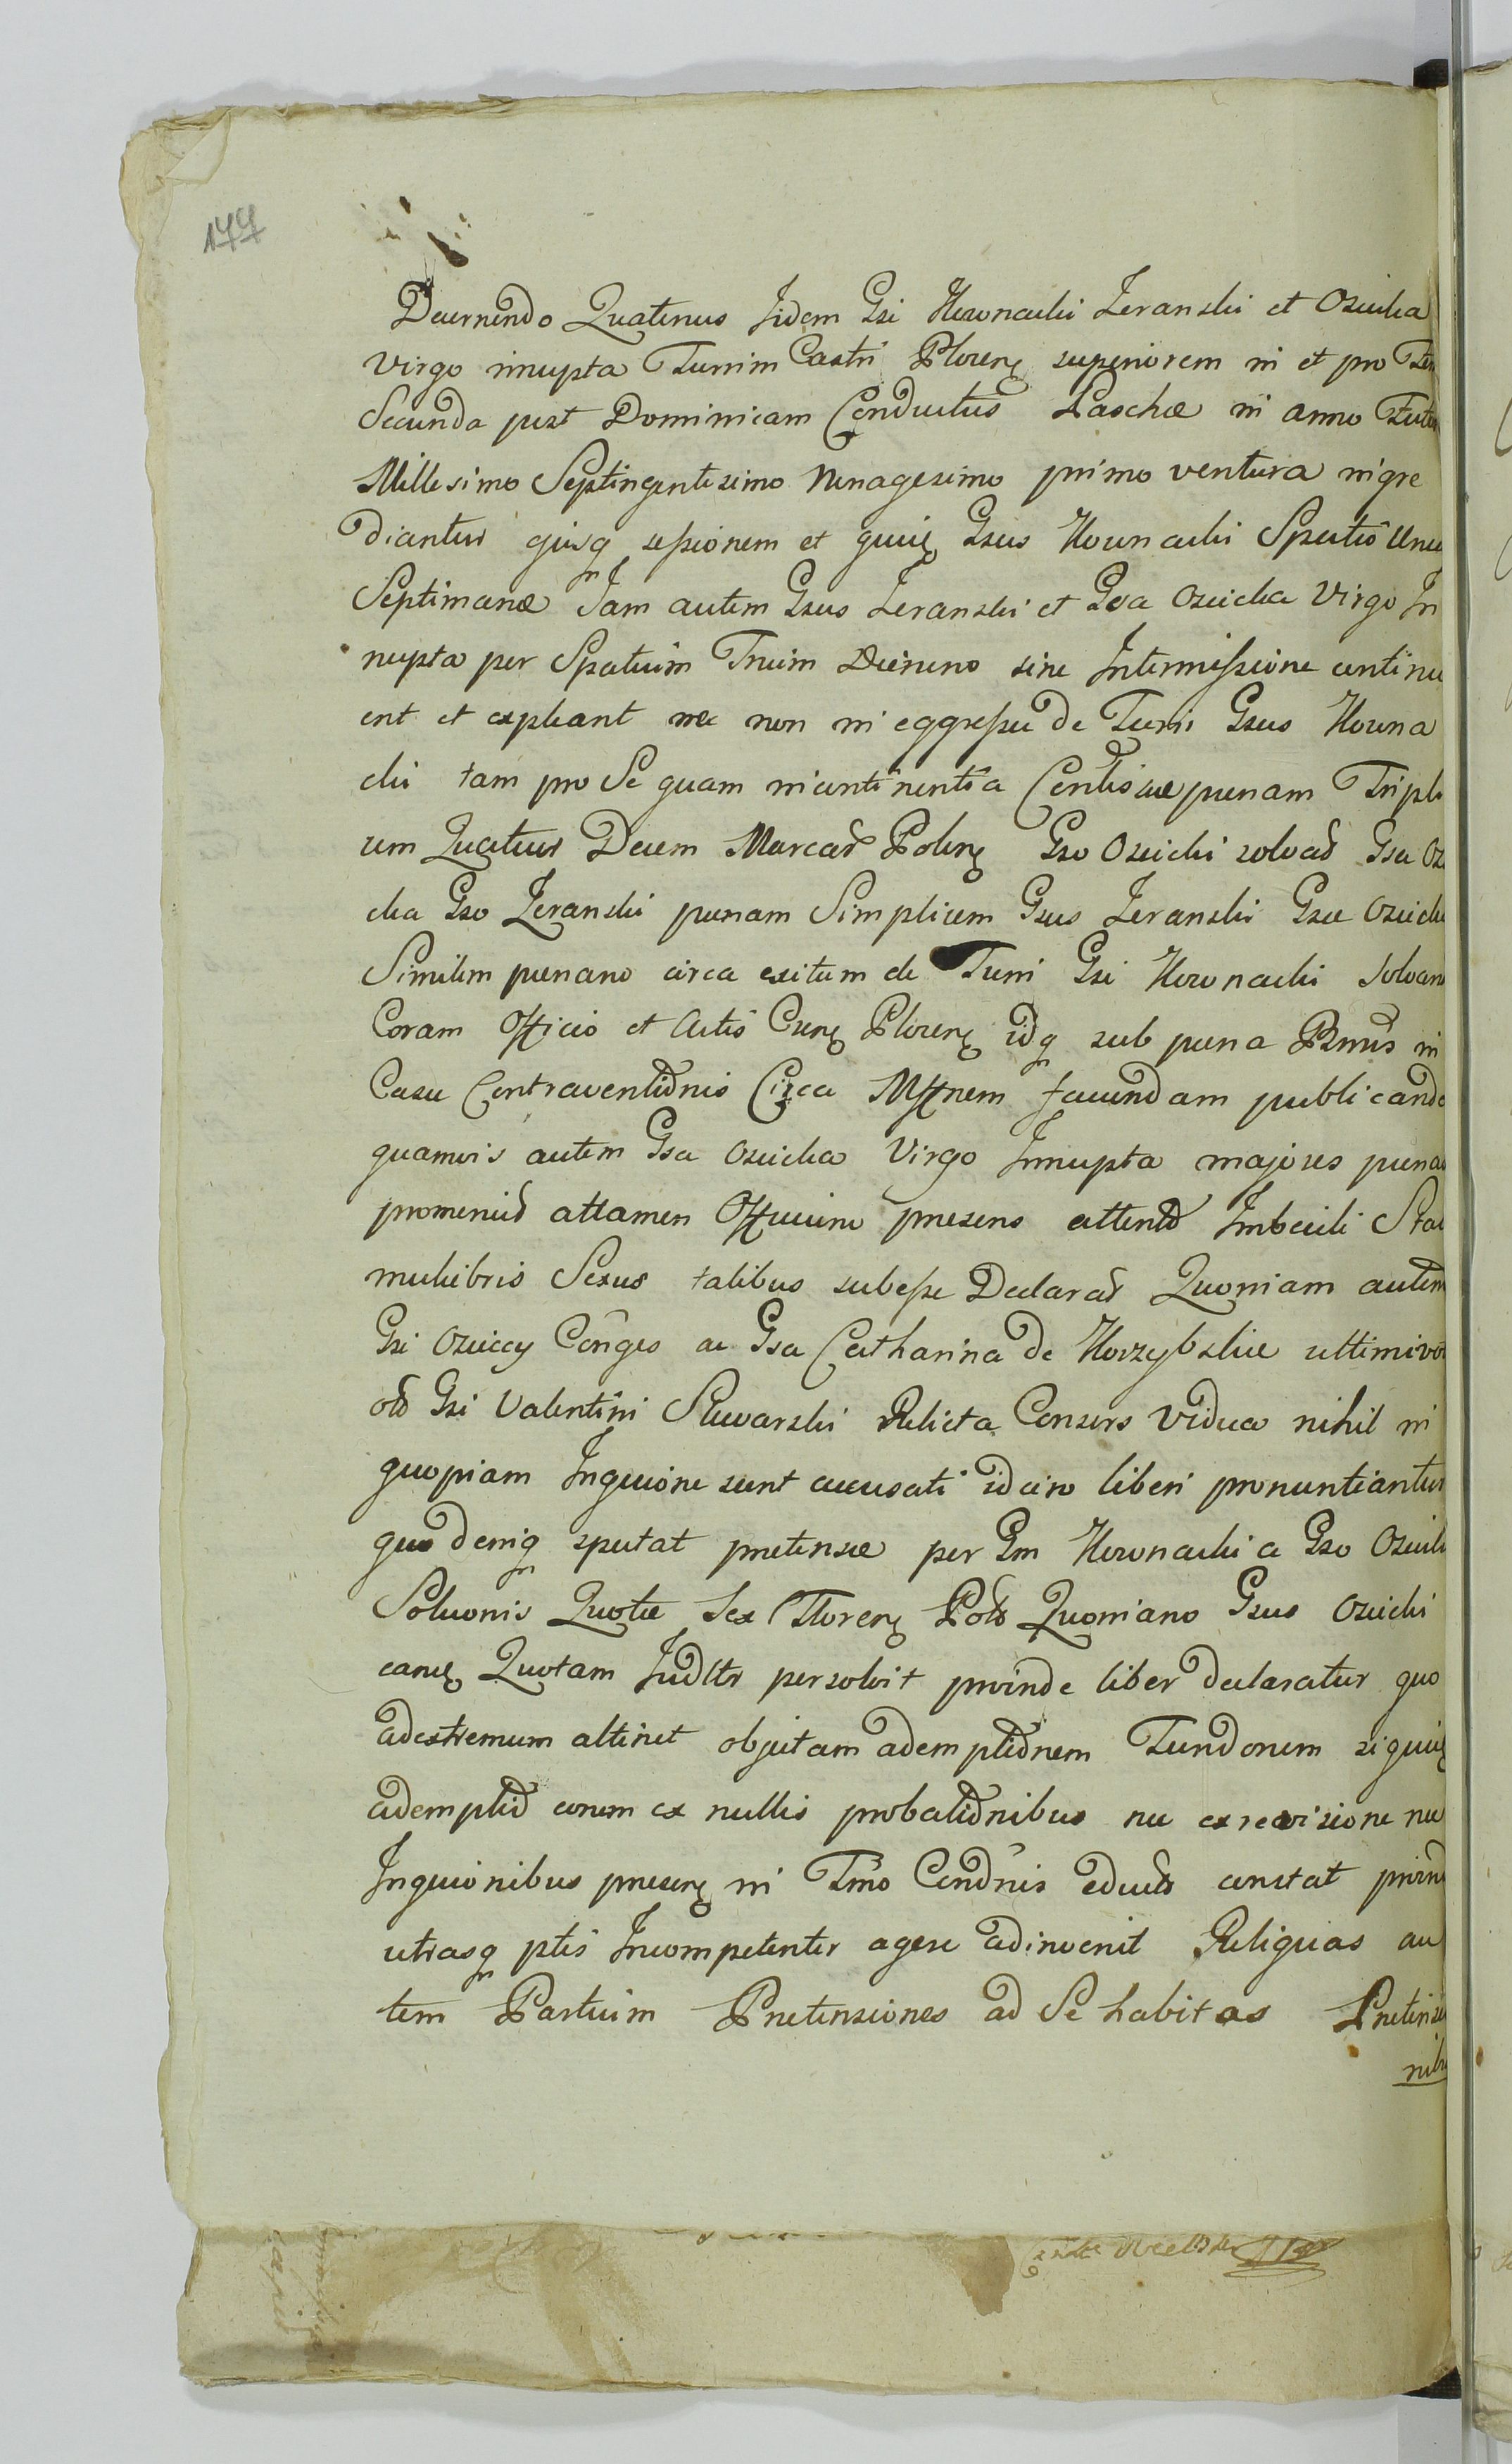 177
Decernendo Quatenus Iidem Gsi Hownacki Zeranski et Osiecka
virgo innupta Turrim Castri Plocen superiorem in et pro
Secunda post Dominicam Conductus Paschæ in anno
Millesimo Septingentesimo Nonagesimo primo ventura ingre
diantur ejusq sessionem et quiq Gsus Hownacki Spatio
Septimanæ Jam autem Gsus Zeranski et Gsa Osiecka Virgo In
nupta per Spatium Trium Dierum sine Intermissione continu
ent et expleant nec non in eggressu de Turri Gsus Howna
cki tam pro Se quam incontinentia Conthsue pœnam Tripli
cem Quatuor Decem Marcar Polon Gso Osiecki solvad Gsa
cka Gso Zeranski pœnam Simplicem Gsus Zeranski Gsæ
Similem pœnam circa exitum de Turri Gsi Hownacki
Coram Officio et Actis Csren Plocen idq sub pœna Bnnis in
Casu Contraventionis Circa publicanda
quamvis autem Gsa Osiecka Virgo Innupta majores pœnas
promeruid attamen Officium præsens attento Imbecili
muliebris Sexus talibus subesse Declarad Quoniam autem
Gsi Osieccy Conges ac Gsa Catharina de ultimivo
olo Gsi Valentini Relicta Consors Vidua nihil in
quopiam Inquione sunt accusati idcirco liberi pronuntiantur
quo deniq spectat prætensæ per Gm Hownacki a Gso
Soluonis Quotæ Sex Floren Pol Quoniam Gsus Osiecki
eamq Quotam Judltr persolvit proinde liber declaratur quo
adextremum attinet objectam ademptionem siquiq
ademptio eorum ex nullis probationibus nec ex revisione nec
Inquionibus præsen in Tmo Condnis eductis constat
utrasq ptes Incompetenter agere adinvenit Reliquas au
tem Partium Prætensiones ad Se habitas